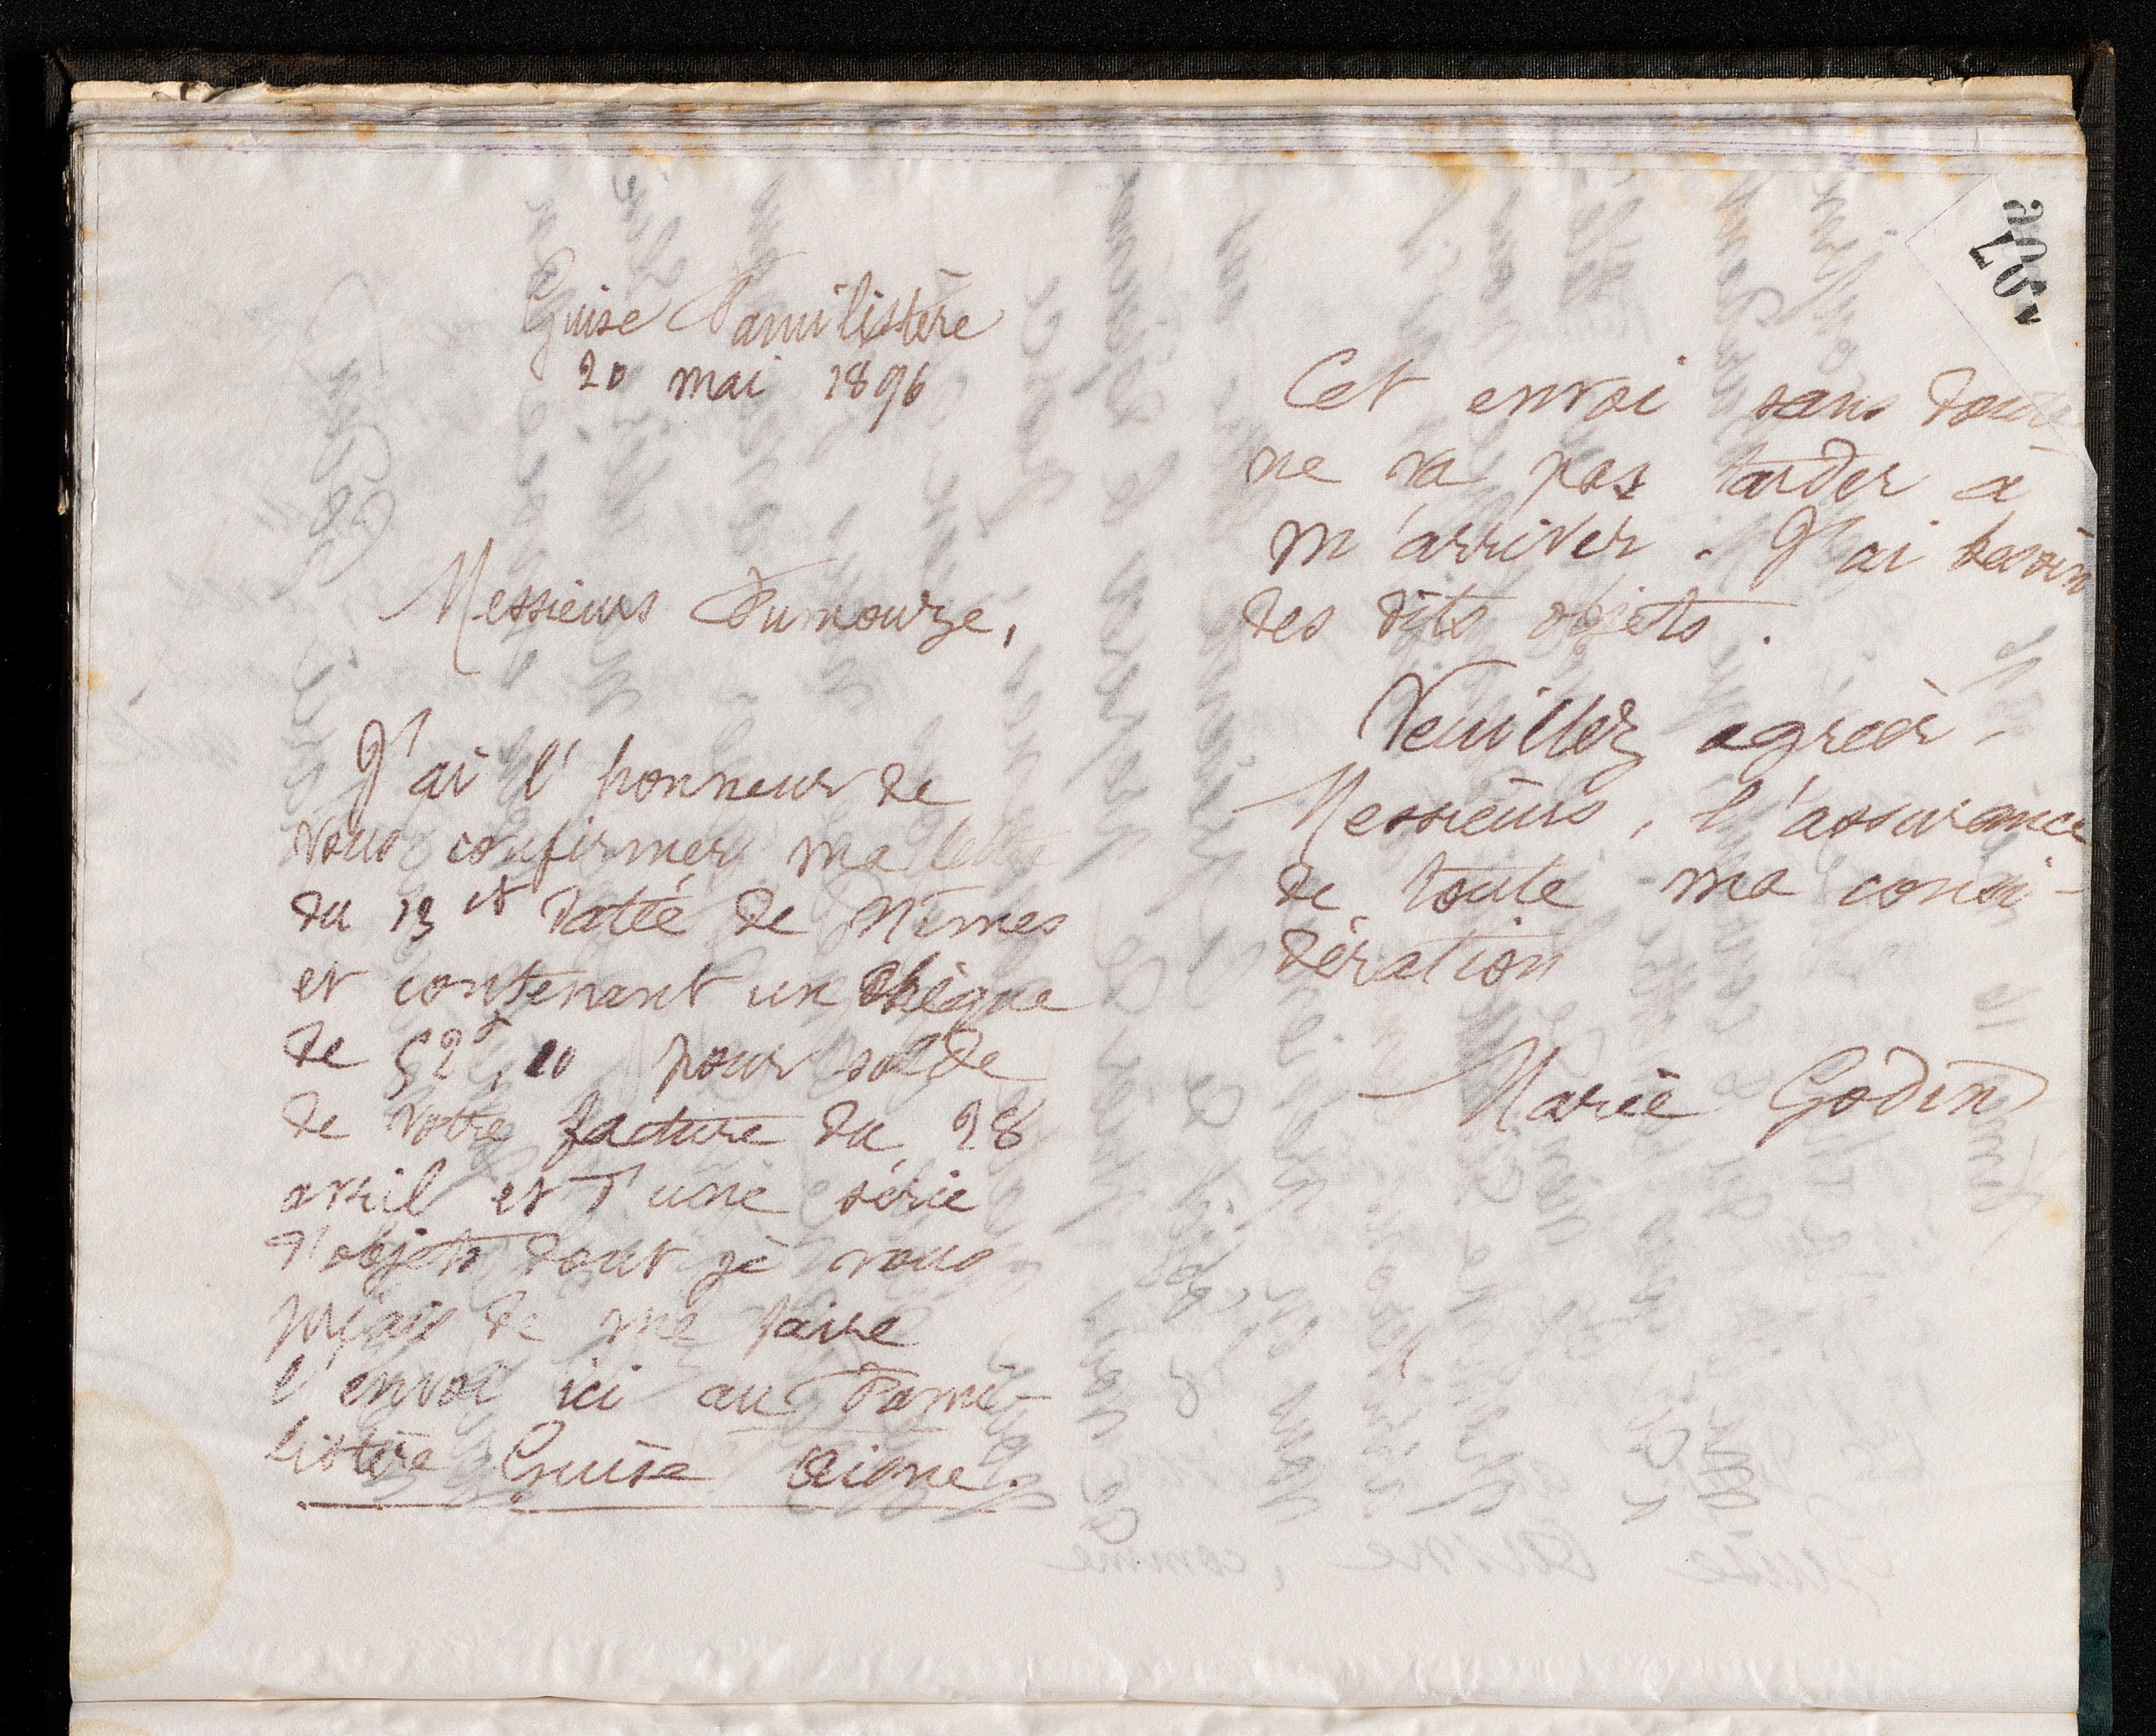 Guise Familistère
20 mai 1896
Messieurs Dumouze,
J'ai l'honneur de
vous confirmer ma lettre
du 13 ct datée de Nîmes
et contenant un chèque
de 52f,10 pour solde
de votre facture du 28
avril et d'une série
d'objets dont je vous
priais de me faire
l'envoi ici au Fami-
listère Guise Aisne.
Cet envoi sans doute
ne va pas tarder à
m'arriver. J'ai besoin
des dits objets.
Veuillez agréer,
Messieurs, l'assurance
de toute ma consi-
dération
Marie Godin